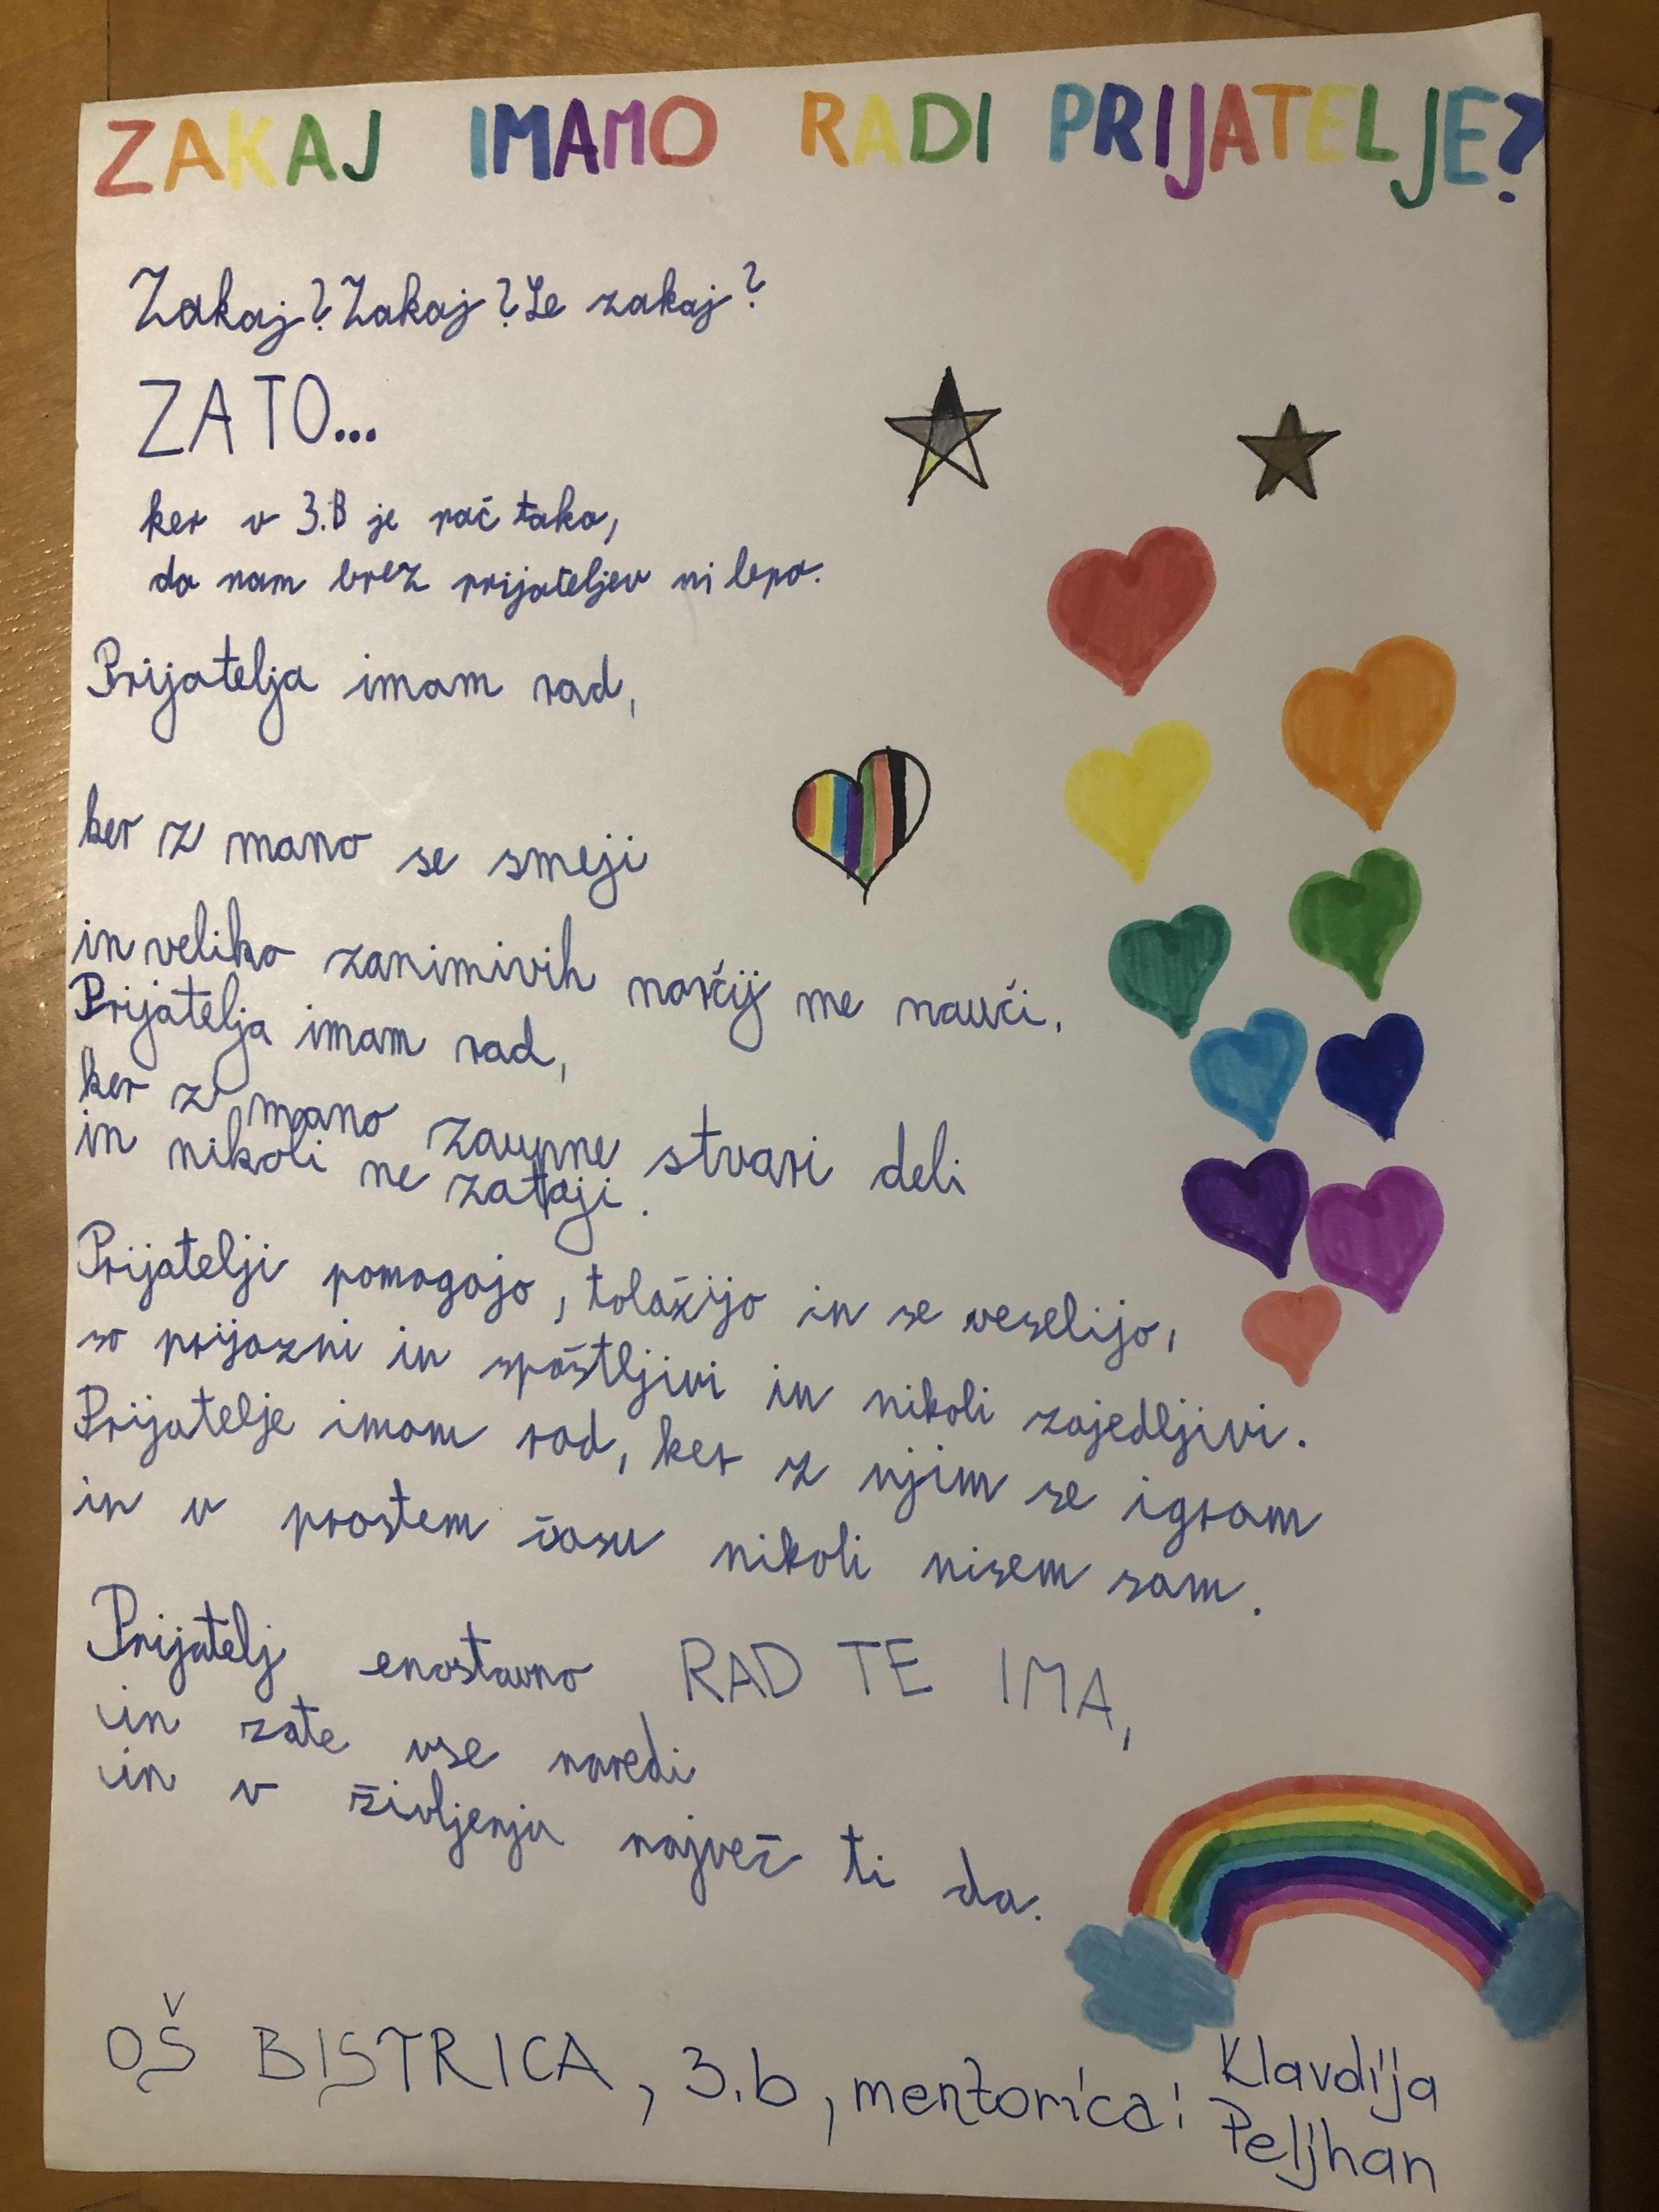 ZAKAJ IMAMO RADI PRIJATELJE?
Zakaj? Zakaj? Le zakaj?
ZATO...
ker v 3.B je pač tako,
da nam brez prijateljev ni lepo.
Prijatelja imam rad,
ker z mano se smeji
in veliko zanimivih norčij me nauči.
Prijatelja imam rad,
ker z mano zaupne stvari deli
in nikoli ne zataji.
Prijatelji pomagajo, tolažijo in se veselijo,
so prijazni in spoštljivi in nikoli zajedljivi.
Prijatelje imam rad, ker z njim se igram
in v prostem času nikoli nisem sam.
Prijatelj enostavno RAD TE IMA,
in zate vse naredi
in v življenju največ ti da.
OŠ BISTRICA, 3.b, mentorica: Klavdija
Peljhan